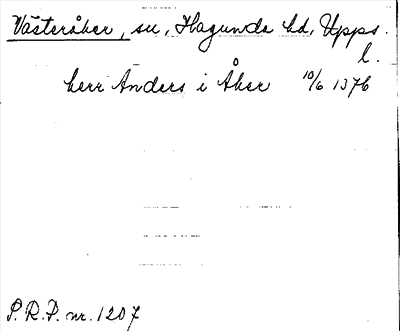 Västeråker, sn, Hagunda hd, Upps.
l.
herr Anders i Åker 10/6 1376
P.R.P. nr. 1207